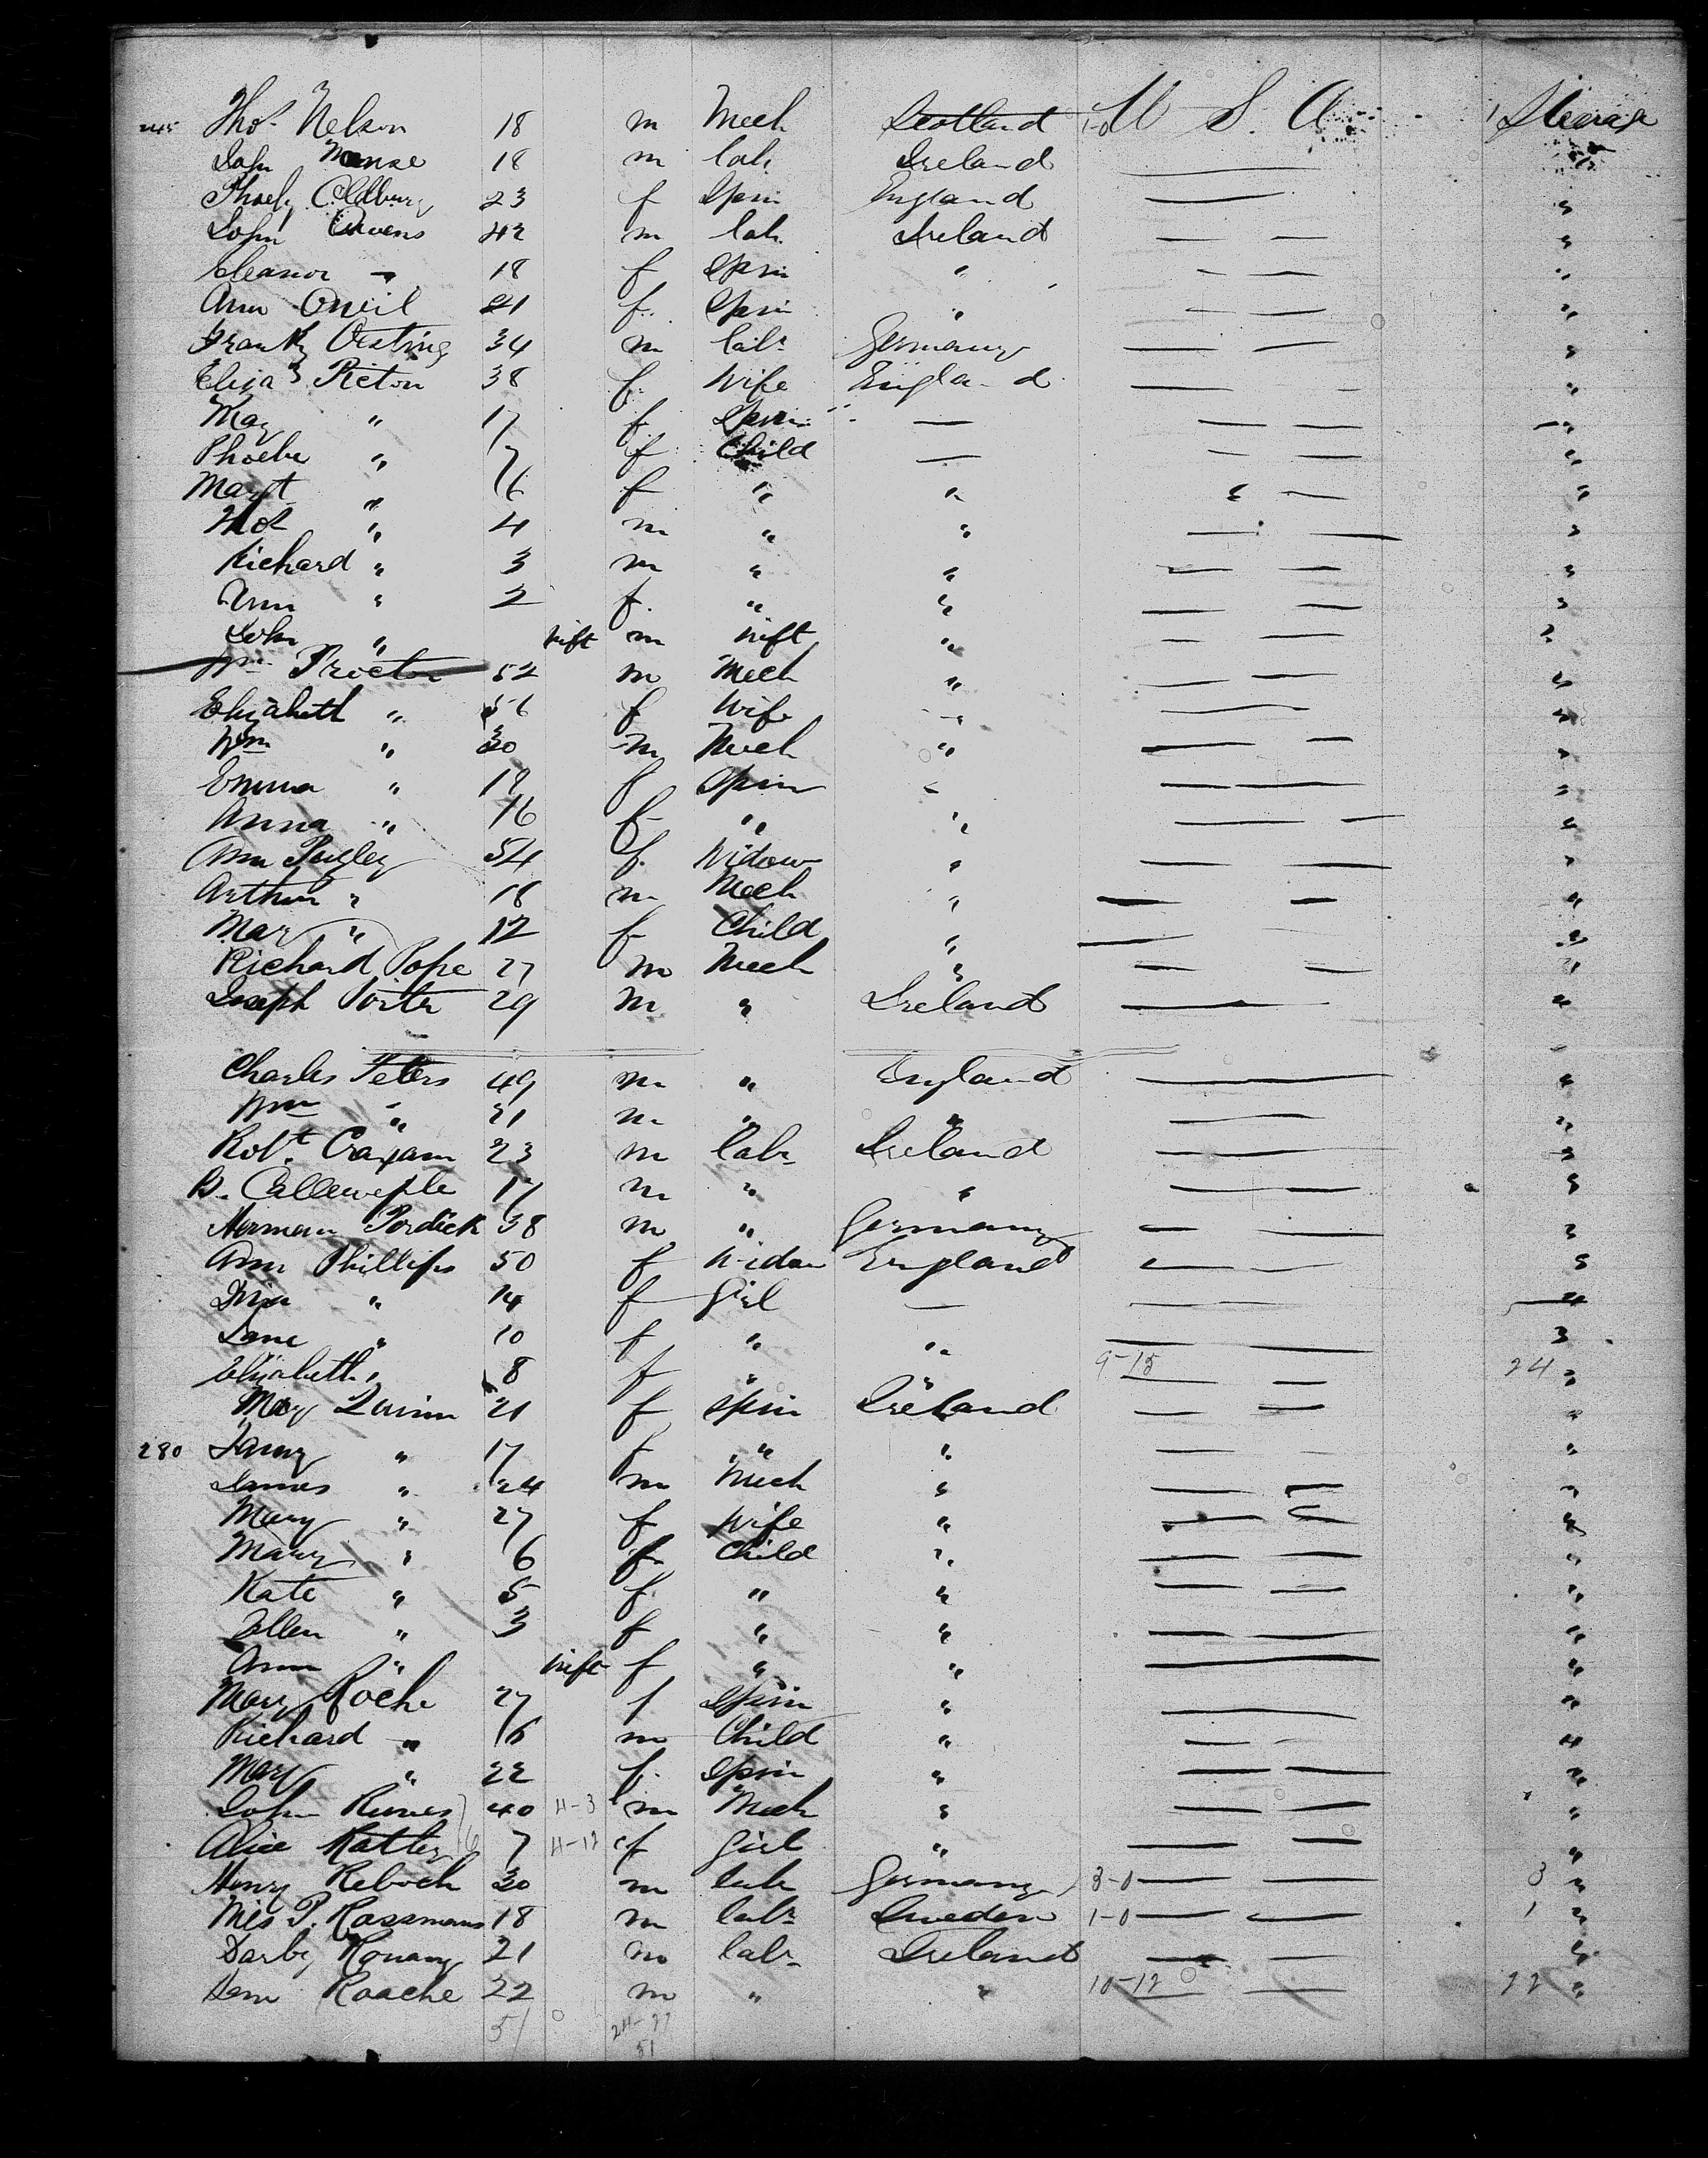 245 Thos Nelson 18 m Mech Scotland 1-0 U S. A 1 Steerage
John 18 m lab. Ireland
Phoeby Oldbury 23 f Spin England "
John Owens 42 m lab. Ireland "
Eleanor " 18 f Spin " "
Ann Oneil 21 f. Spin " "
Frank Oesting 34 m labr Germany "
Eliza Picton 38 f. Wife England "
May " 17 f. Spin — "
Phoebe " 7 f Child — "
Margt " 6 f " " "
Thos " 4 m " " "
Richard " 3 m " " "
Ann " 2 f. " " "
John " inft m inft " "
Wm Procter 52 m Mech " "
Elizabeth " 51 f Wife " "
Wm " 30 m Mech " "
Emma " 19 f Spin " "
Anna " 16 f " " "
Ann Pugley 54 f. Widow " "
Arthur " 18 m Mech " "
Mary " 12 f Child " "
Richard Pope 27 m Mech " "
Joseph Porter 29 m " Ireland "
Charles Peters 49 m " England "
Wm " 21 m " " "
Robt. 23 m labr Ireland "
B. 17 m " " "
Herman Pordick 38 m " Germany "
Ann Phillips 50 f Widow England "
" 14 f Girl — "
Jane " 10 f " " "
Elizabeth " 8 f " " 9-15 24 "
Mary Quinn 21 f Spin Ireland "
280 Fanny " 17 f " " "
James " 24 m Mech " "
Mary " 27 f Wife " "
Mary " 6 f Child " "
Kate " 5 f. " " "
Ellen " 3 f " " "
Ann " inft f " " "
Mary Roche 27 f Spin " "
Richard " 16 m Child " "
Mary " 22 f. Spin " "
John 40 4-3 m Mech " "
Alice 7 4-12 f Girl " "
Henry Reboch 30 m lab Germany 3-0 3 "
P. Rassmans 18 m labr Sweden 1-0 1 "
Darby Ronany 21 m labr Ireland "
Roache 22 m " " 10-12 22 "
51 24-27
51